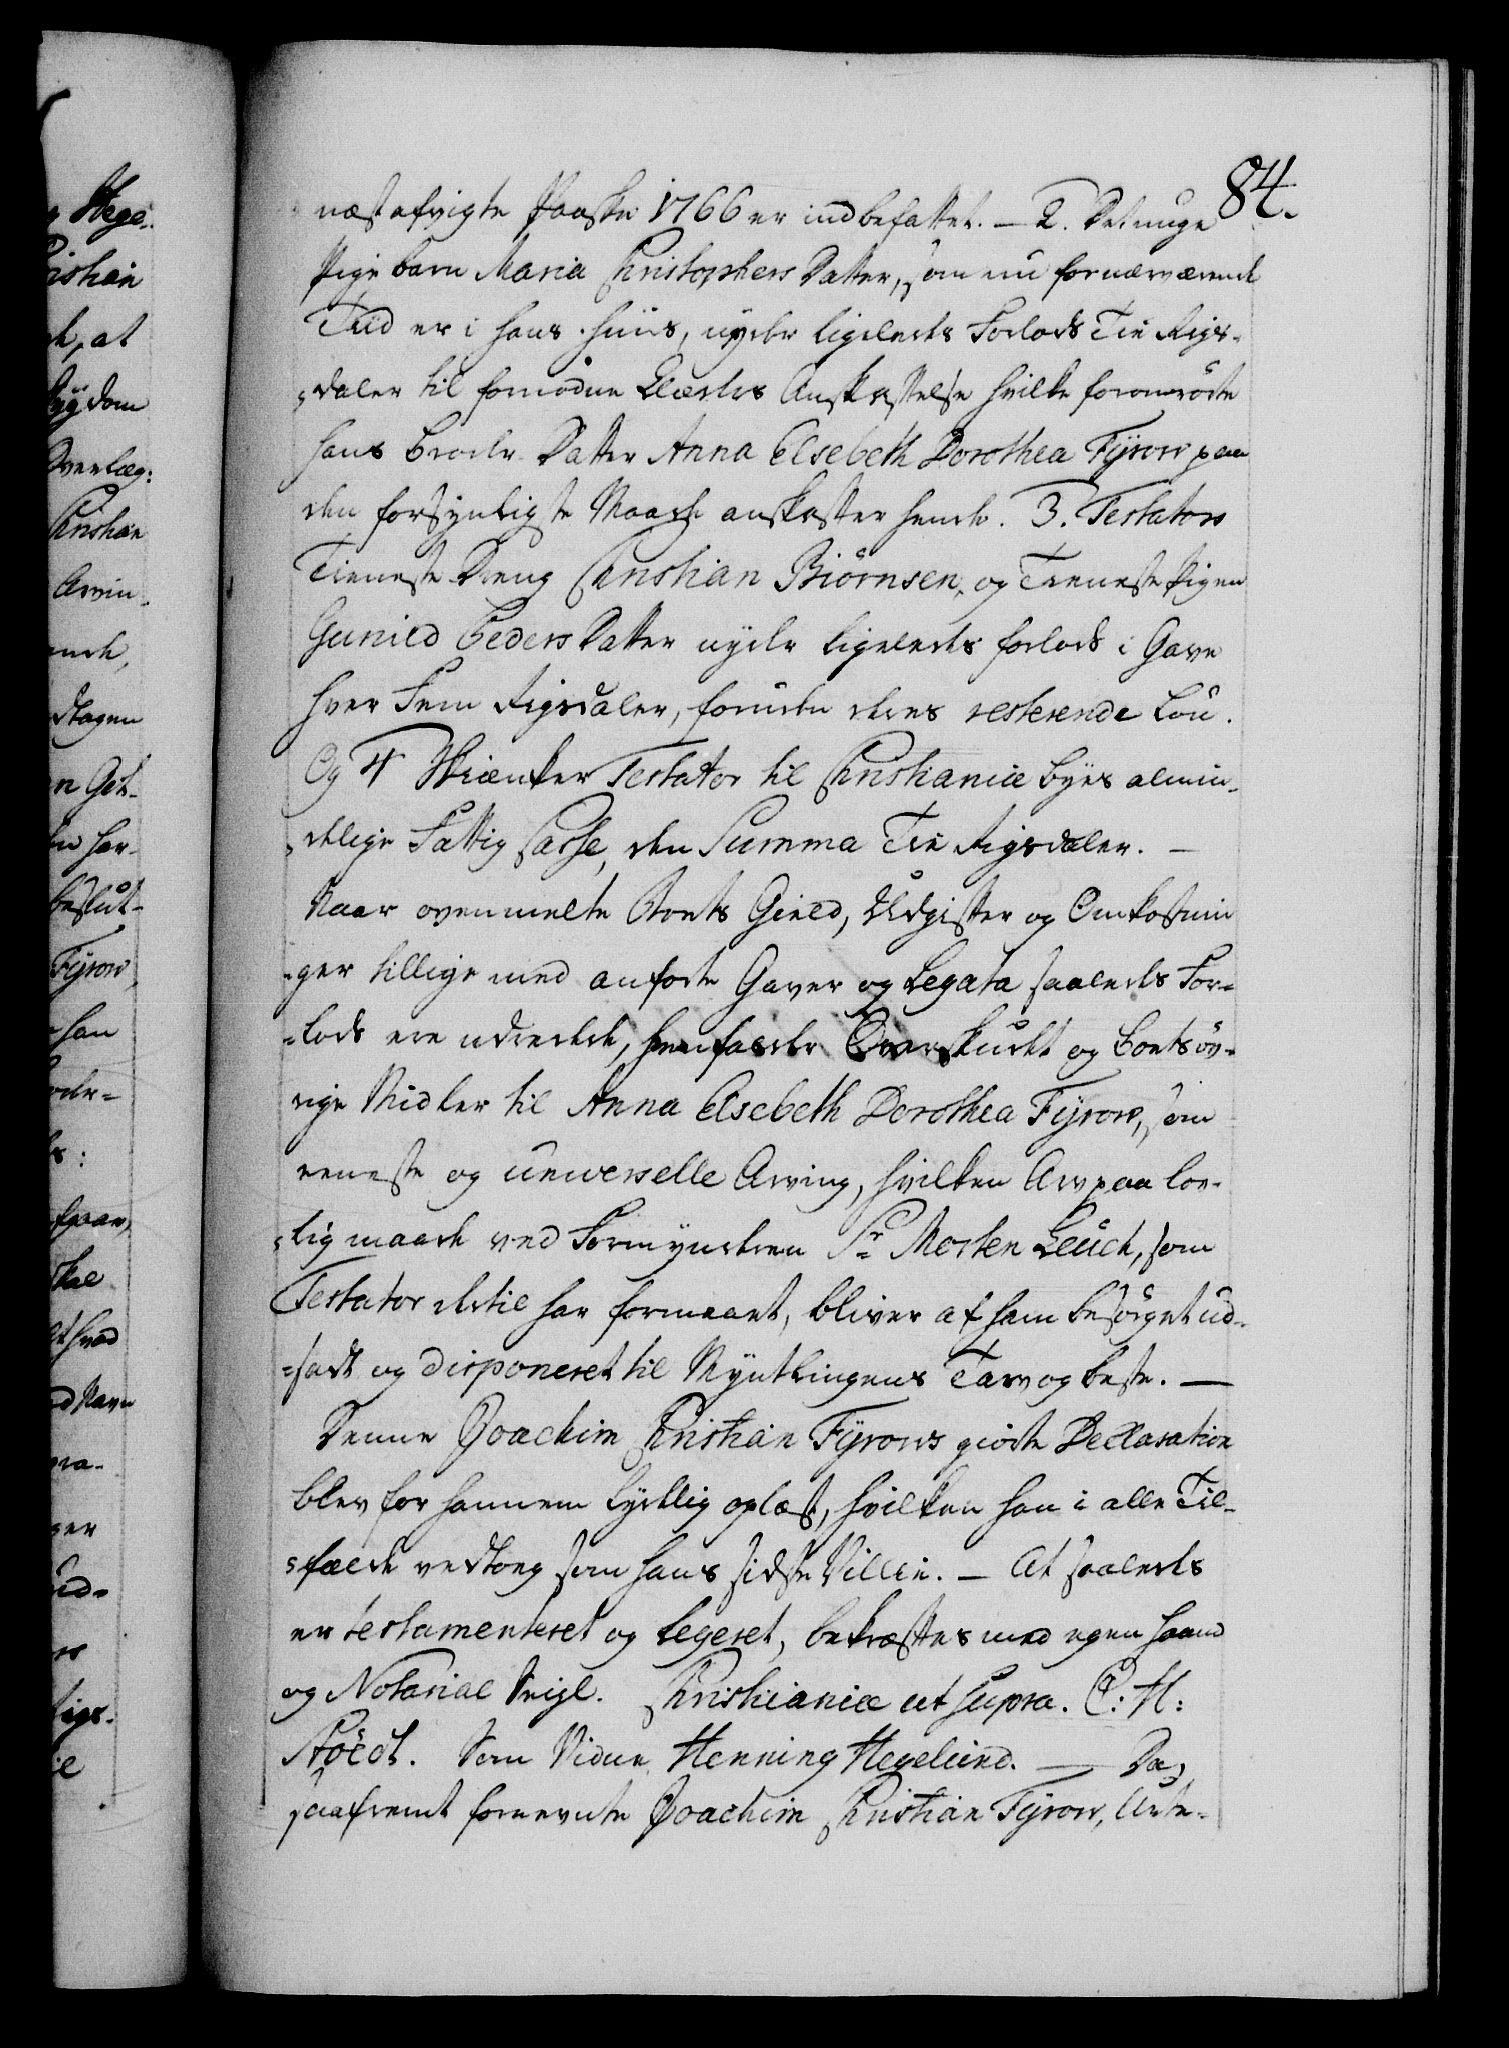 84.
næstafvigte Paaske 1766 er indbefattet. — 2. Det unge
Pige barn Maria Christophers Datter, som nu fornærværende
Tiid er i hans Huus, nyder ligeledes Forlods Tie Rigs-
daler til fornødne Klæders Anskaffelse hvilke foromrørte
hans Broder Datter Anna Elsebeth Dorothea Fÿrow paa
den forsynligste Maade anskaffer hende. 3. Testators
Tieneste Dreng Christian Biörnsen, og Tieneste Pigen
Gunild Peders Datter nyder ligeledes forlods i Gave
hver Fem Rigsdaler, foruden deres resterende Lön.
Og 4 Skiænker Testator til Christianiæ byes almin-
delige Fattig Casse, den Summa Tie Rigsdaler. —
Naar ovenmelte Boets Gield, Udgifter og Omkostnin
-ger tillige med anførte Gaver og Legata saaledes For-
-lods ere udredede, henfalder Overskudet og Boets öv-
rige Midler til Anna Elsebeth Dorothea Fÿrow, som
eeneste og universelle Arving, hvilken Arv paa lov-
lig maade ved Formynderen Sr. Morten Leuch, som
Testator dertil har formaaet, bliver af ham besörget ud-
-sadt og disponeret til Myntlingens Tarv og beste. —
Denne Joachim Christian Fÿrows giorte Declaration
blev for hannem tydelig oplæst, hvilken han i alle Til-
fælde vedtoeg som hans sidste Villie. — At saaledes
er testamenteret og legeret, bekræftes med egen Haand
og Notarial Seigl. Christianiæ ut supra. C: H:
Stöcdt. Som Vidne Henning Hegelund. — Da
saafremt fornevnte Joachim Christian Fÿrow, Ante-